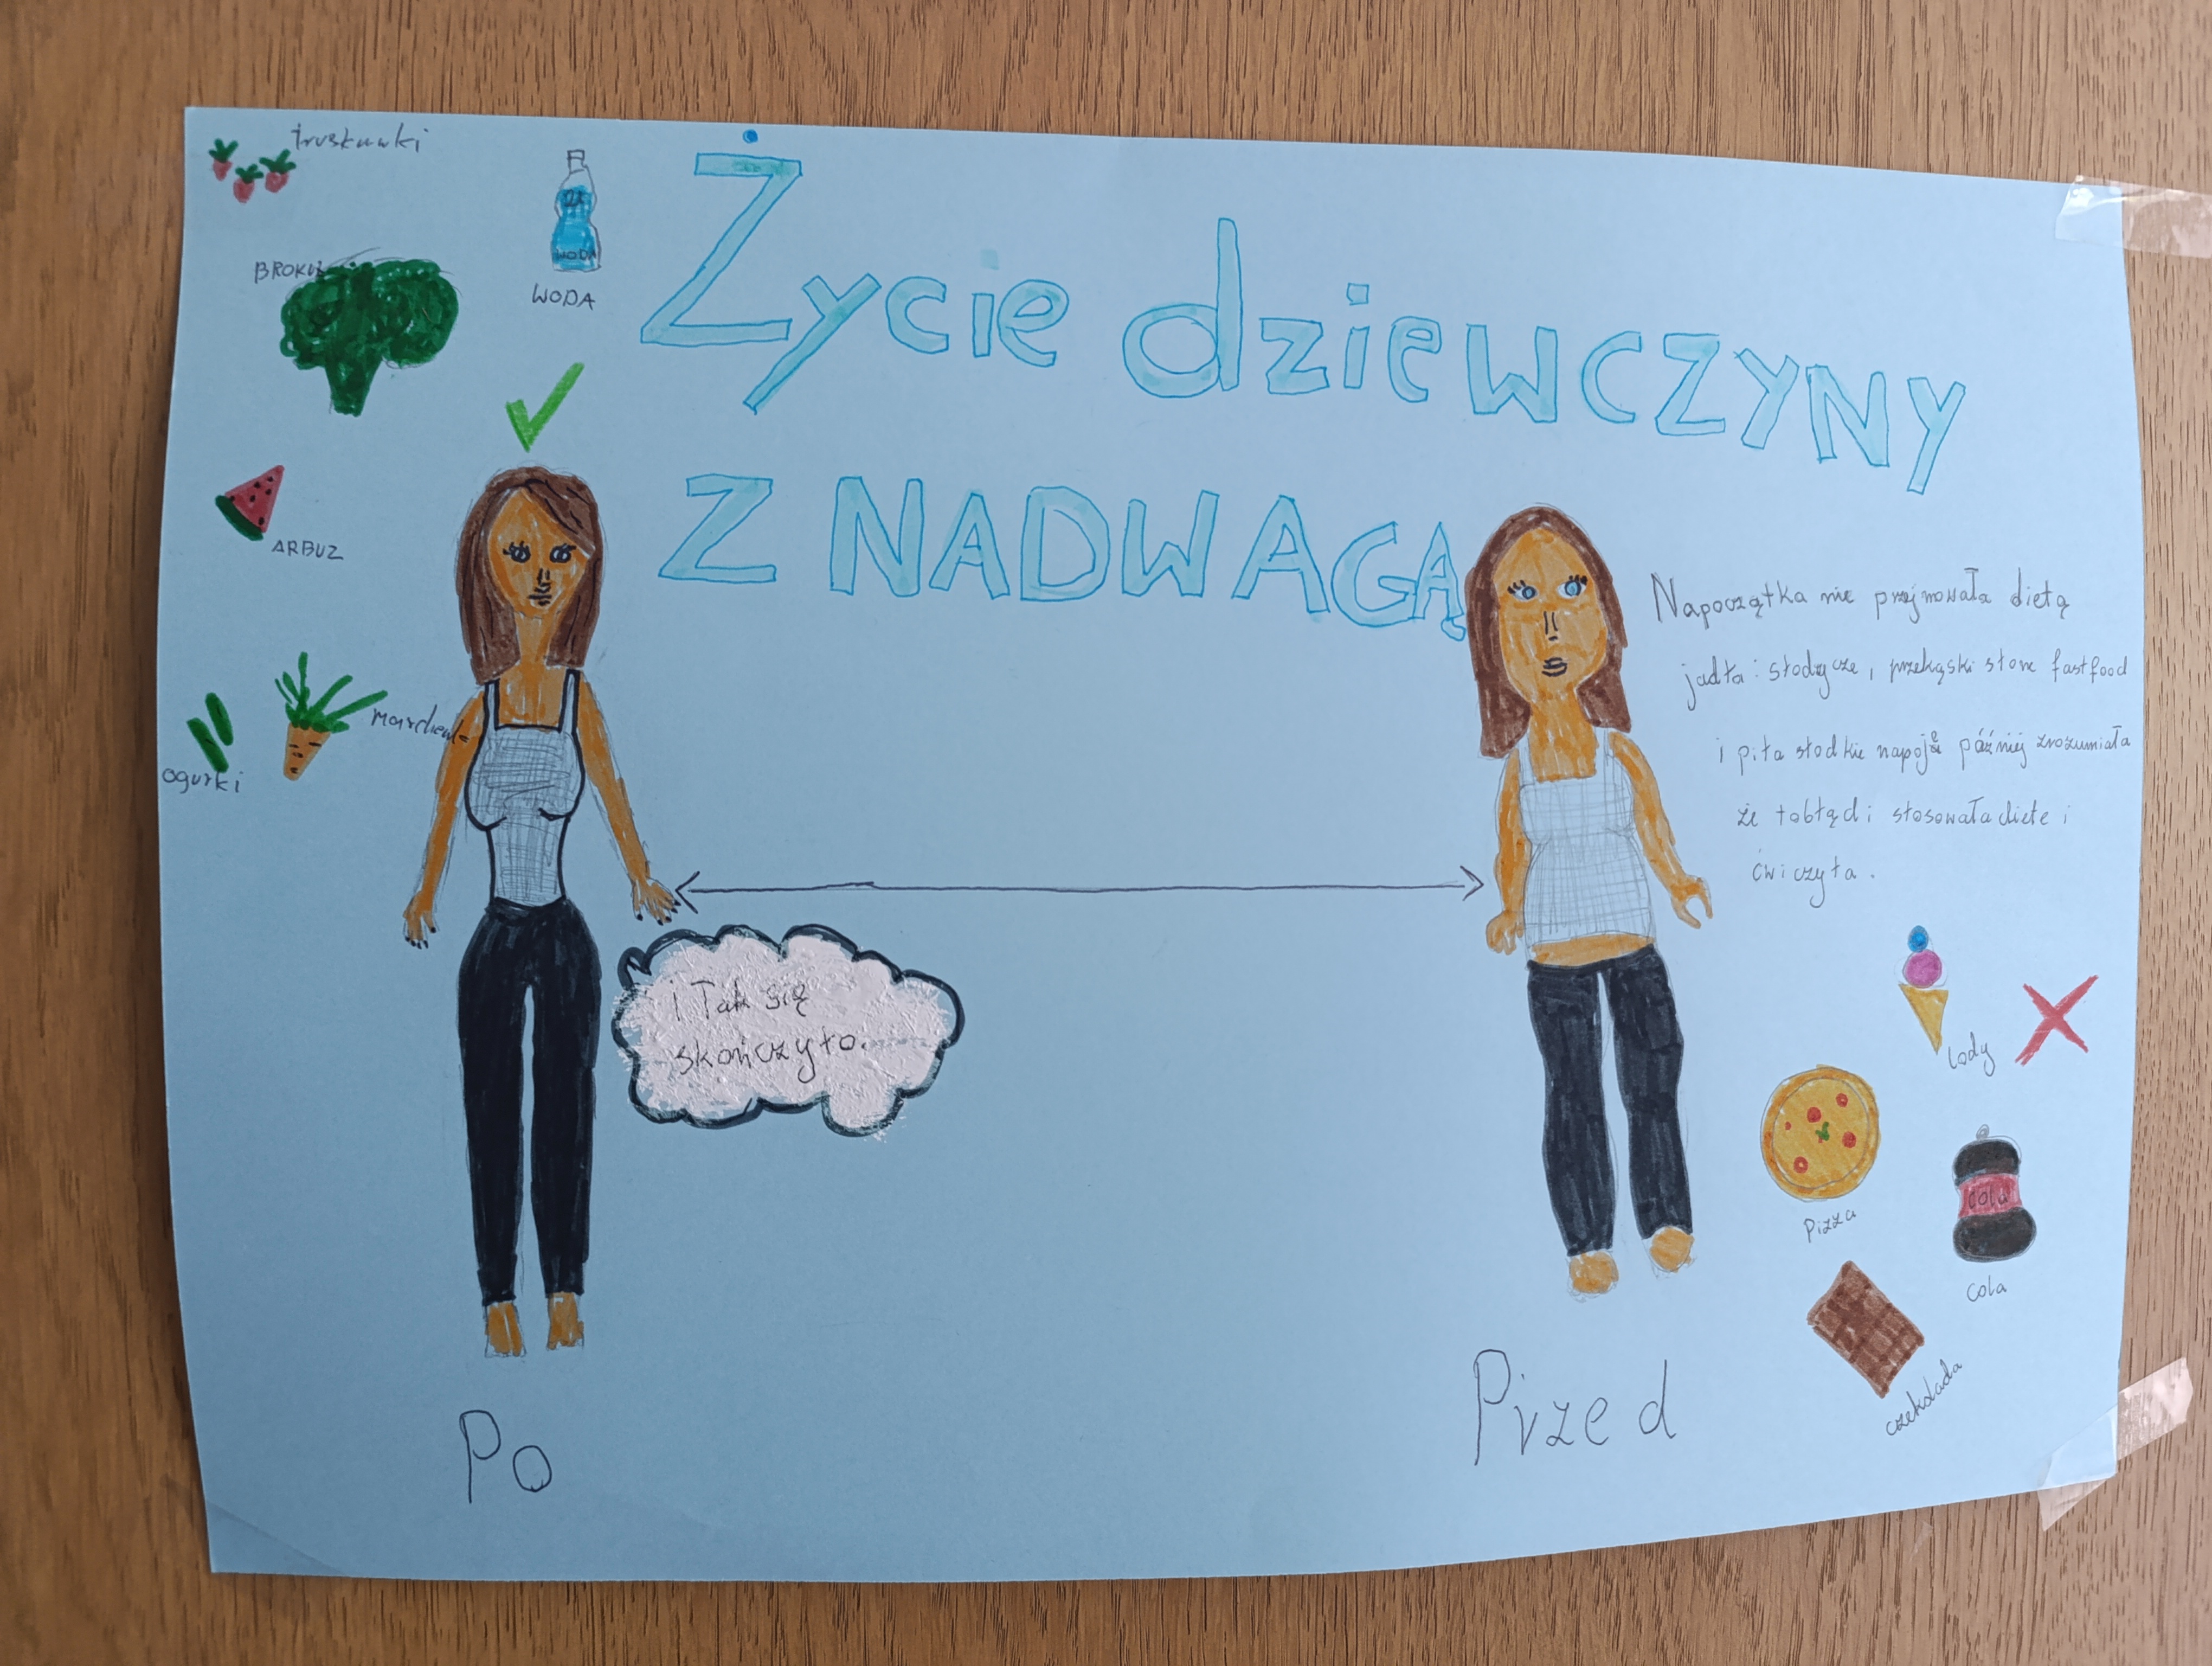 truskawki
BROKUŁ
WODA
WODA
Życie dziewczyny
Z NADWAGĄ
ARBUZ
ogurki
marchewka
Napoczątka nie przejmowała dietą
jadła: słodycze, przekąski słone fastfood
i piła słodkie napoje później zrozumiała
że tobłąd i stosowała diete i
ćwiczyła.
I Tak się
skończyło.
lody
Pizza
cola
cola
czekolada
Po
Przed